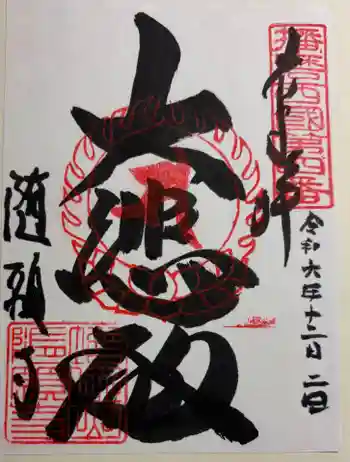 奉拝
令和六年十二月二日
大悲殿
随願寺